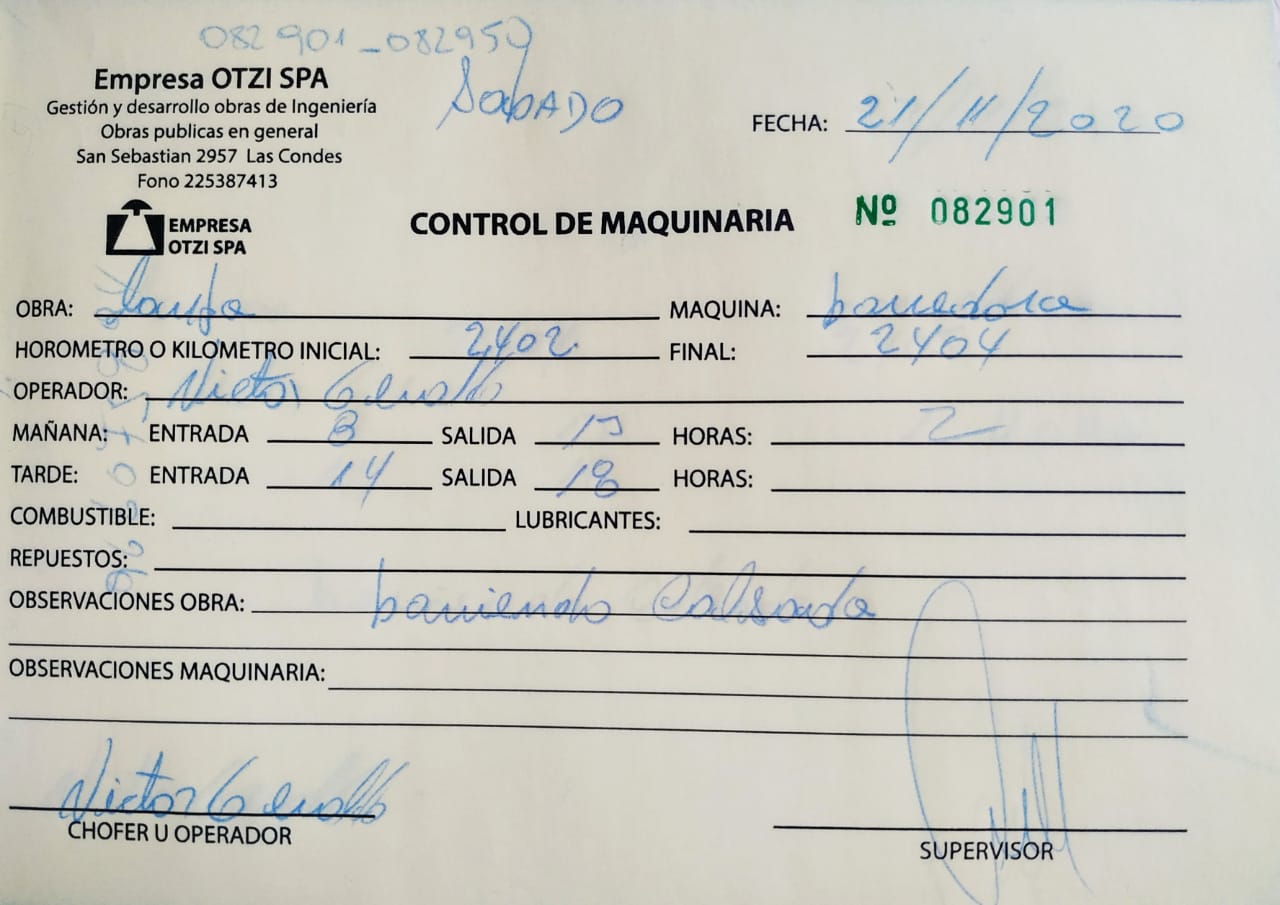 082901_082950
Empresa OTZI SPA
Gestión y desarrollo obras de Ingeniería
Obras publicas en general
San Sebastian 2957 Las Condes
Fono 225387413
SabADO
FECHA: 21/11/2020
EMPRESA
OTZI SPA
CONTROL DE MAQUINARIA
Nº 082901
OBRA: MAQUINA: barredora
HOROMETRO O KILOMETRO INICIAL: 2402 FINAL: 2404
OPERADOR: Victor
MAÑANA: ENTRADA 8 SALIDA 13 HORAS: 2
TARDE: ENTRADA 14 SALIDA 18 HORAS:
COMBUSTIBLE: LUBRICANTES:
REPUESTOS:
OBSERVACIONES OBRA: barriendo Calsada
OBSERVACIONES MAQUINARIA:
Victor
CHOFER U OPERADOR
SUPERVISOR